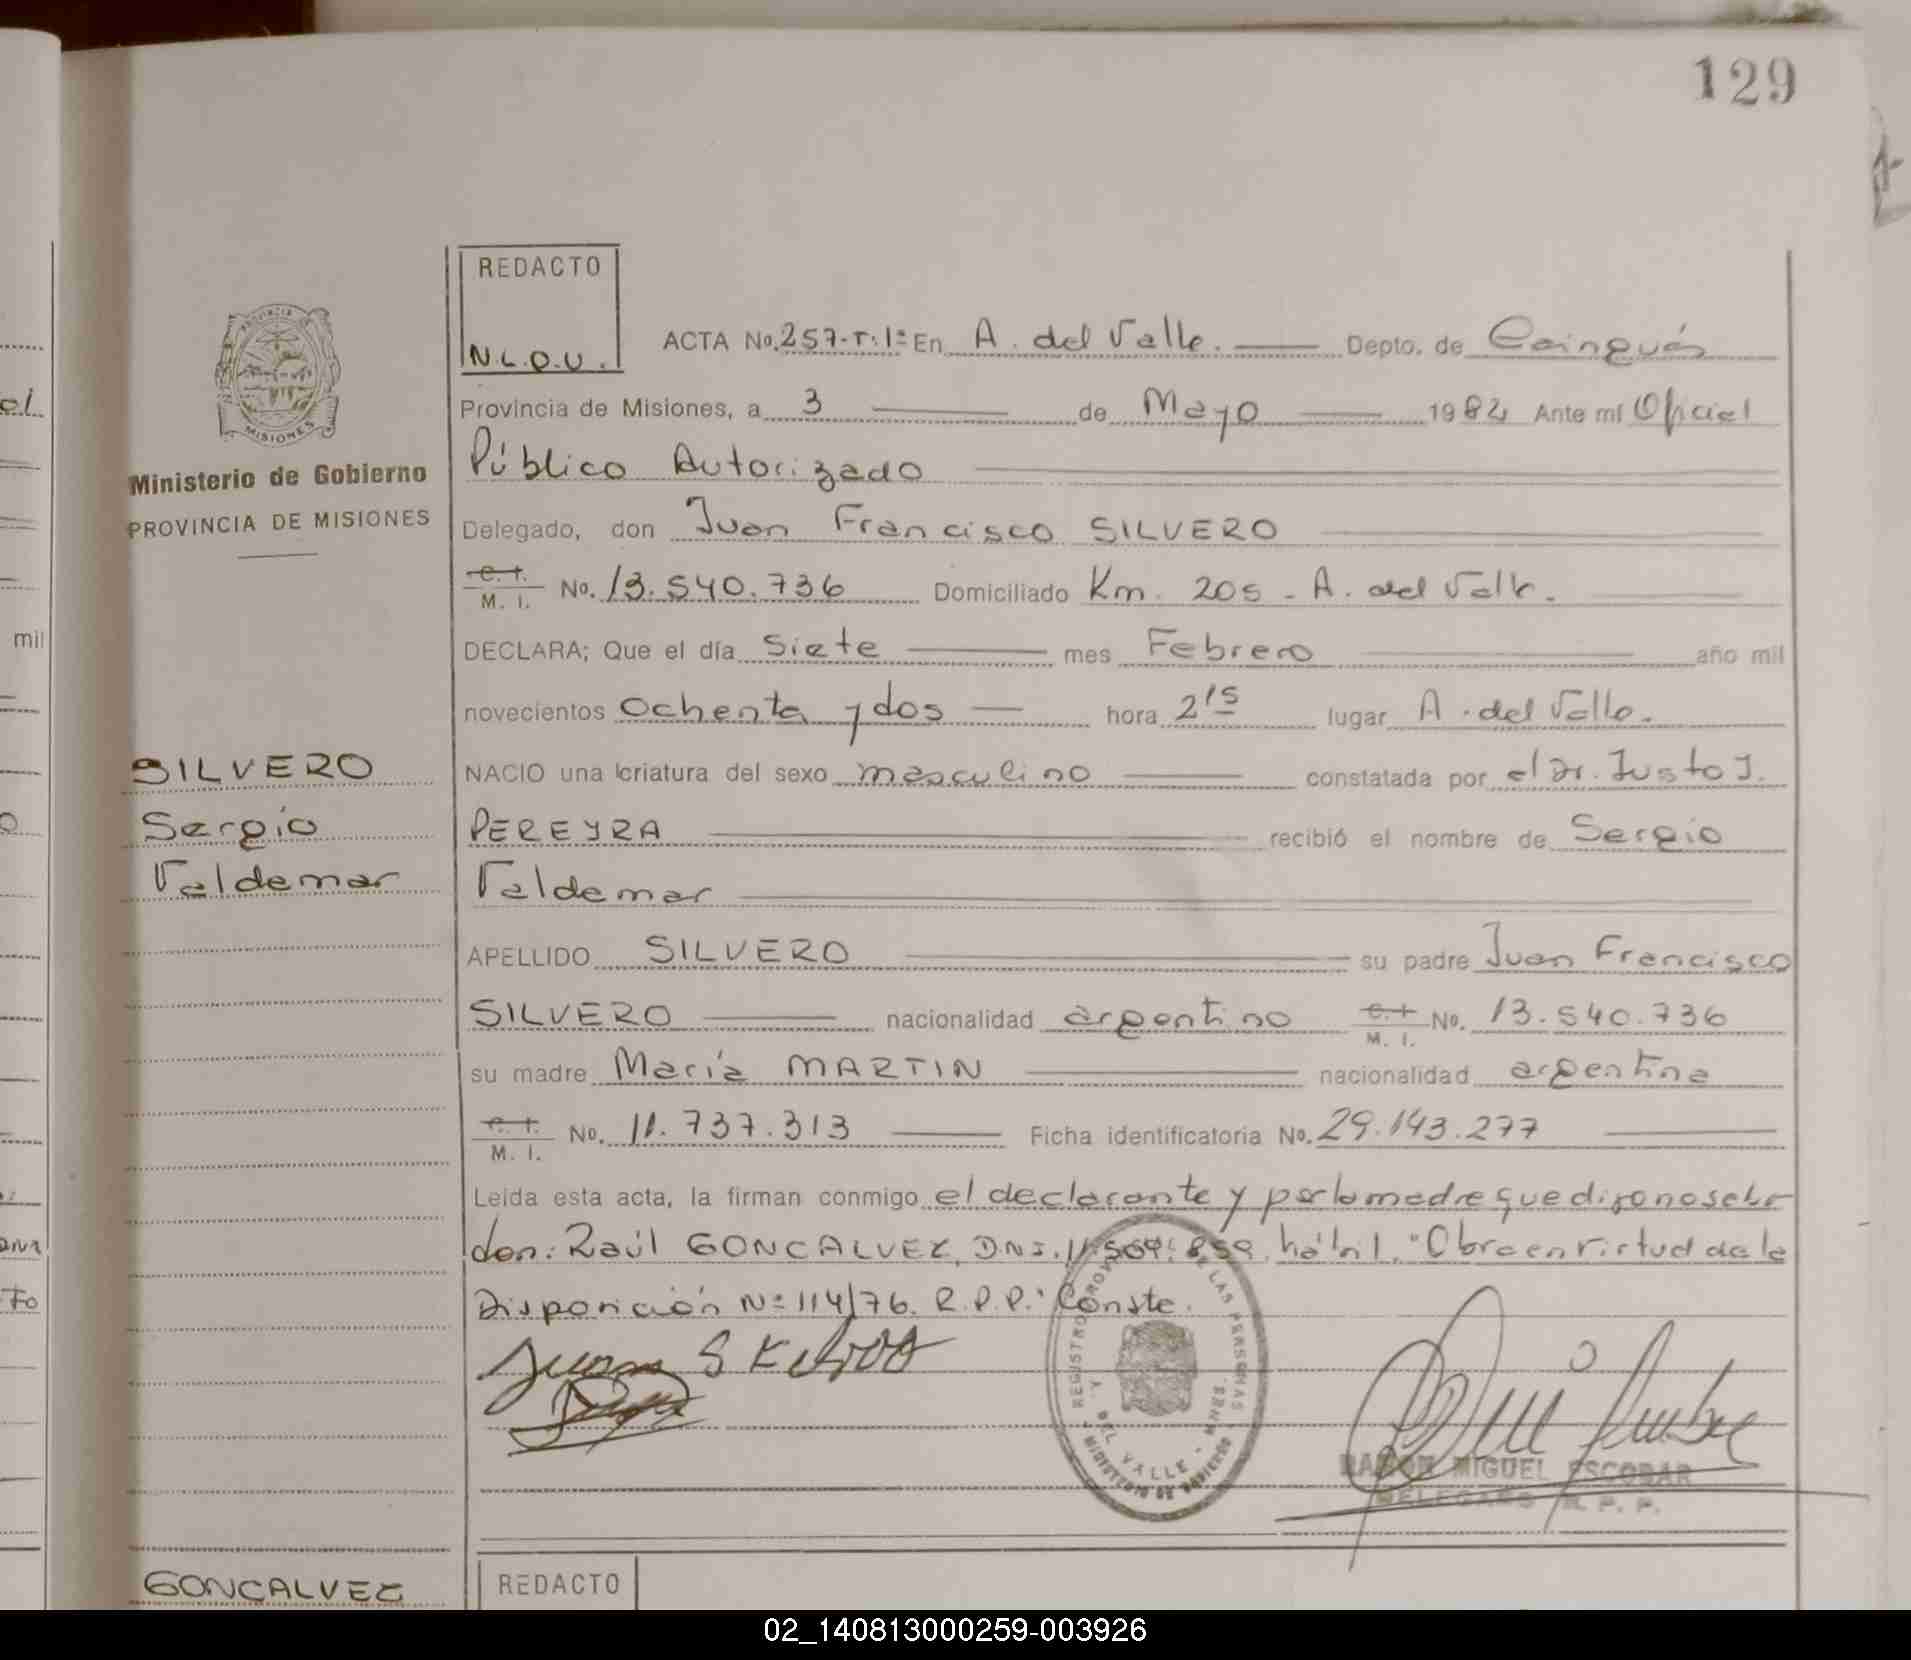 129
REDACTO
N.L.D.U.
ACTA No. 257-T:1º En A. del Valle. Depto. de Cainguás
Provincia de Misiones, a 3 de Mayo 1982 Ante mí Oficial
Público Autorizado
Ministerio de Gobierno
PROVINCIA DE MISIONES
Delegado, don Juan Francisco SILVERO
C. I. M. I. No. 13.540.736 Domiciliado Km. 205 - A. del Valle.
DECLARA; Que el día Siete mes Febrero año mil
novecientos Ochenta y dos hora 2 15 lugar A. del Valle.
NACIO una criatura del sexo masculino constatada por el Dr. Justo J.
PEREYRA recibió el nombre de Sergio
Valdemar
SILVERO
Sergio
Valdemar
APELLIDO SILVERO su padre Juan Francisco
SILVERO nacionalidad argentino C. I. M. I. No. 13.540.736
su madre María MARTIN nacionalidad argentina
C. I. M. I. No. 11.737.313 Ficha identificatoria No. 29.143.277
Leída esta acta, la firman conmigo el declarante y por la madre que dijo no saber
don: Raúl GONCALVEZ, D.N.I. 11.569.859, hábil. "Obra en virtud de la
Disposición Nº 114/76. R.P.P." Conste.
REGISTRO PROV DE LAS PERSONAS
A. DEL VALLE - MNES.
MINISTERIO DE GOBIERNO
RAMON MIGUEL ESCOBAR
DELEGADO R. P. P.
GONCALVEZ
REDACTO
mil
02_140813000259-003926